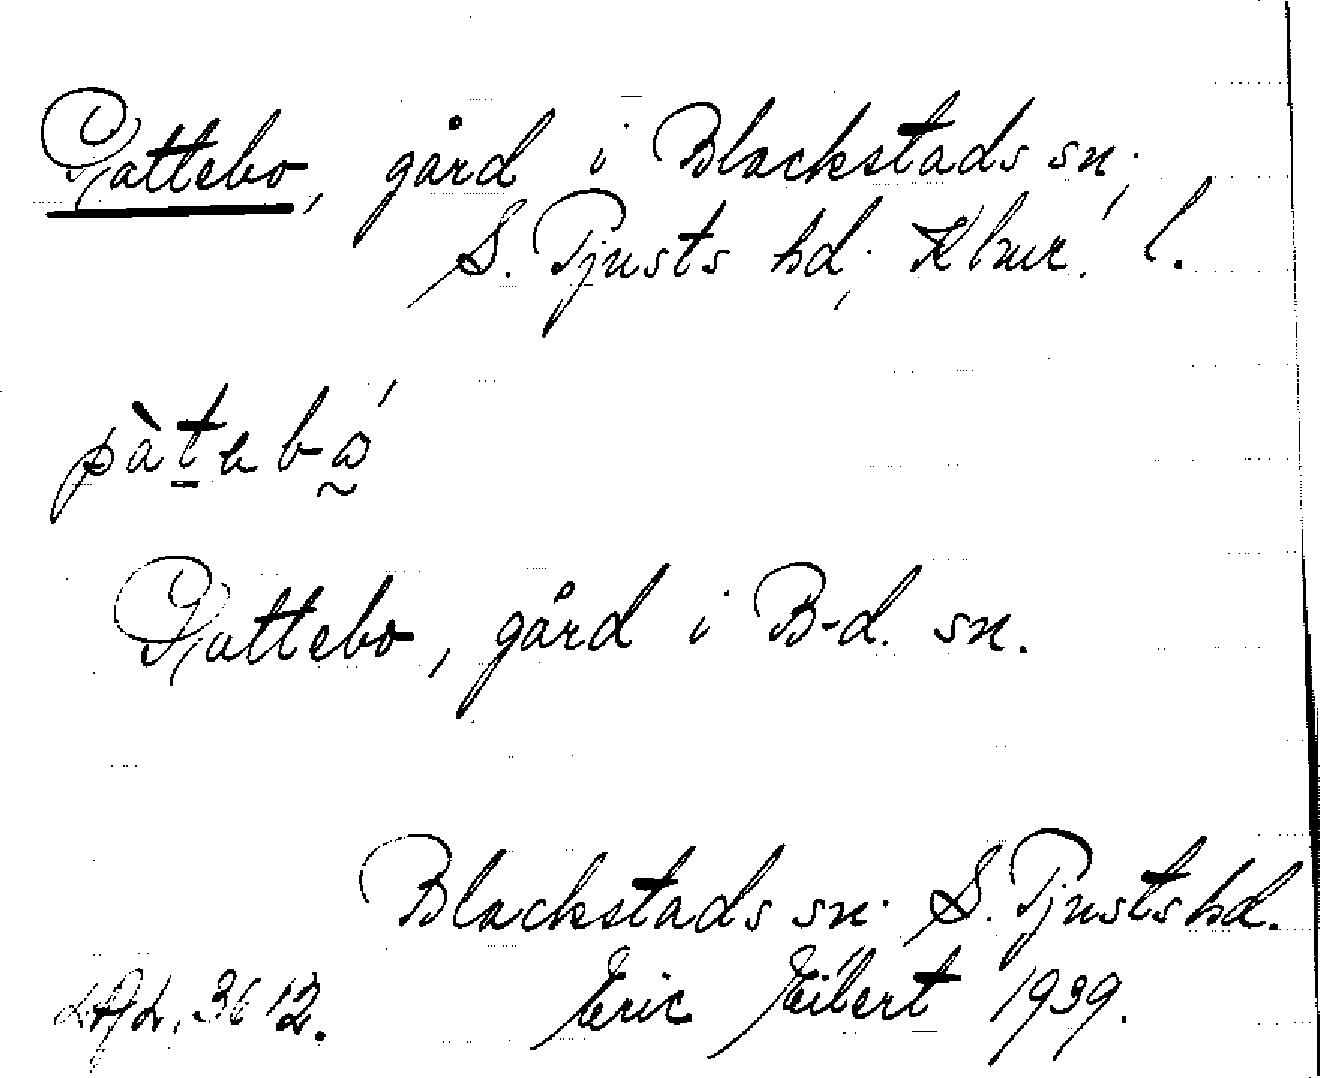 Pattebo, gård i Blackstads sn;
S. Tjusts hd; Klmr. l.
Pattebo, gård i B-d. sn.
Blackstads sn. S. Tjusts hd.
3612. Eric Eibert 1939.